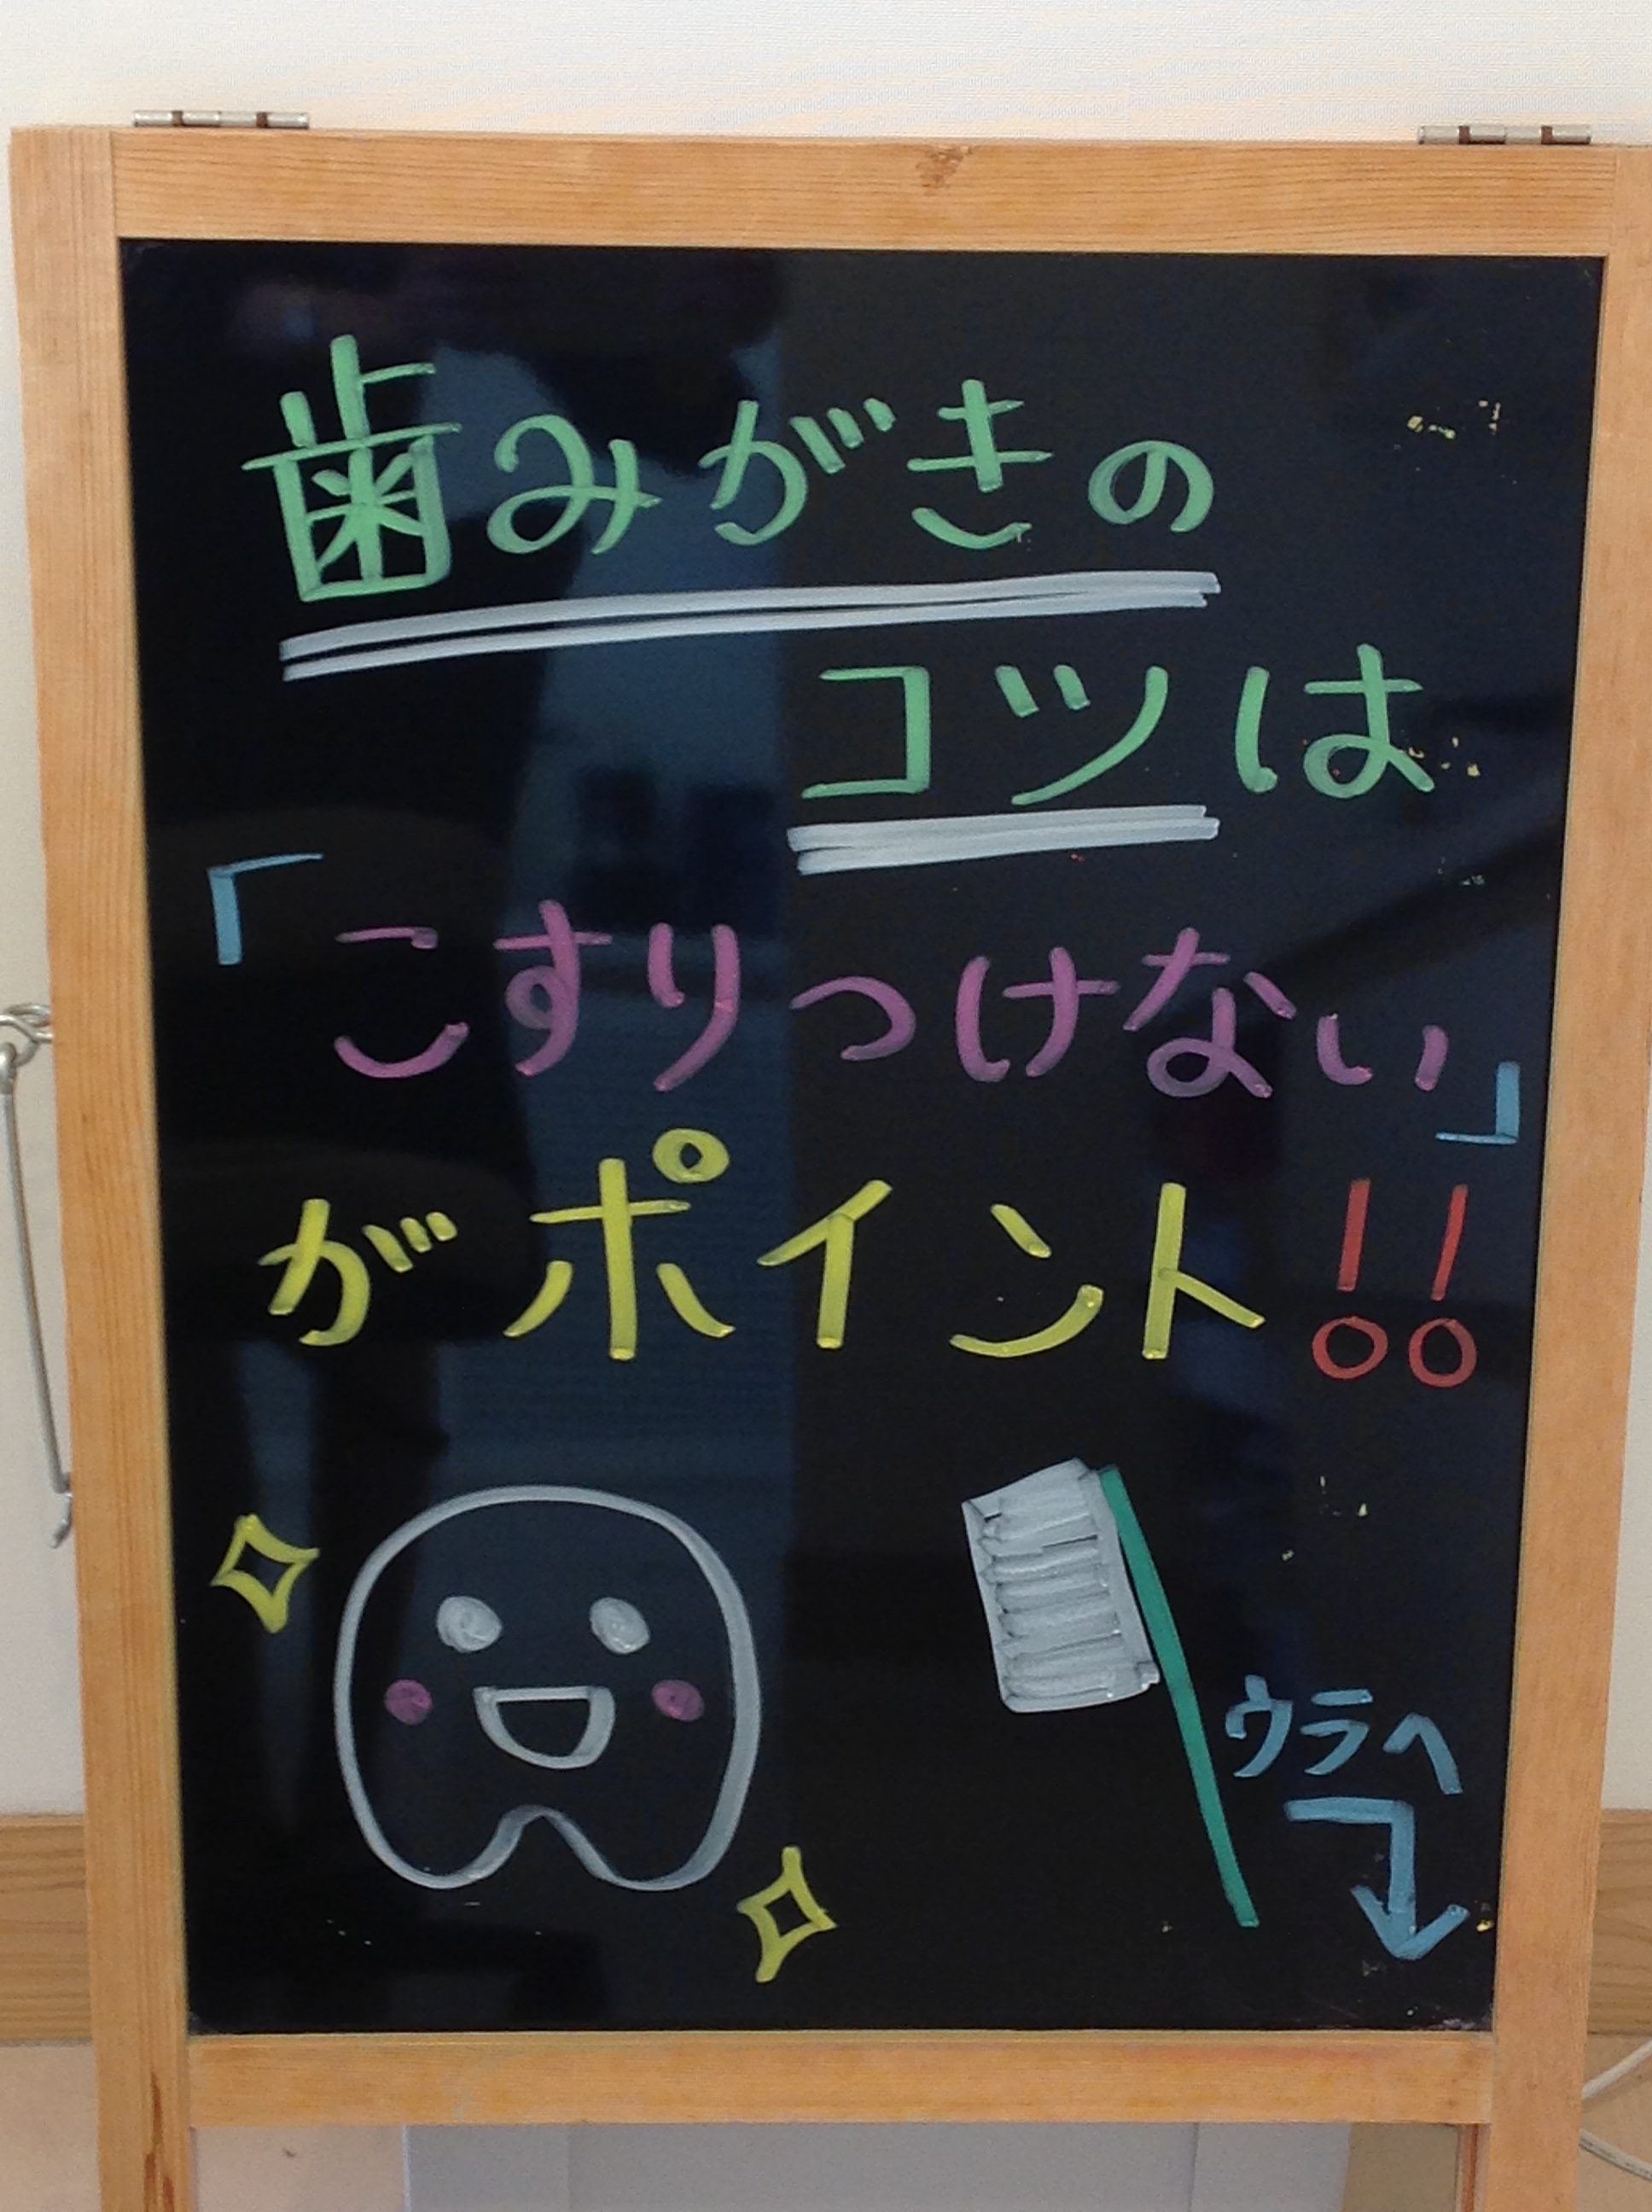 歯みがきの
コツは
「こすりつけない」
がポイント!!
ウラへ